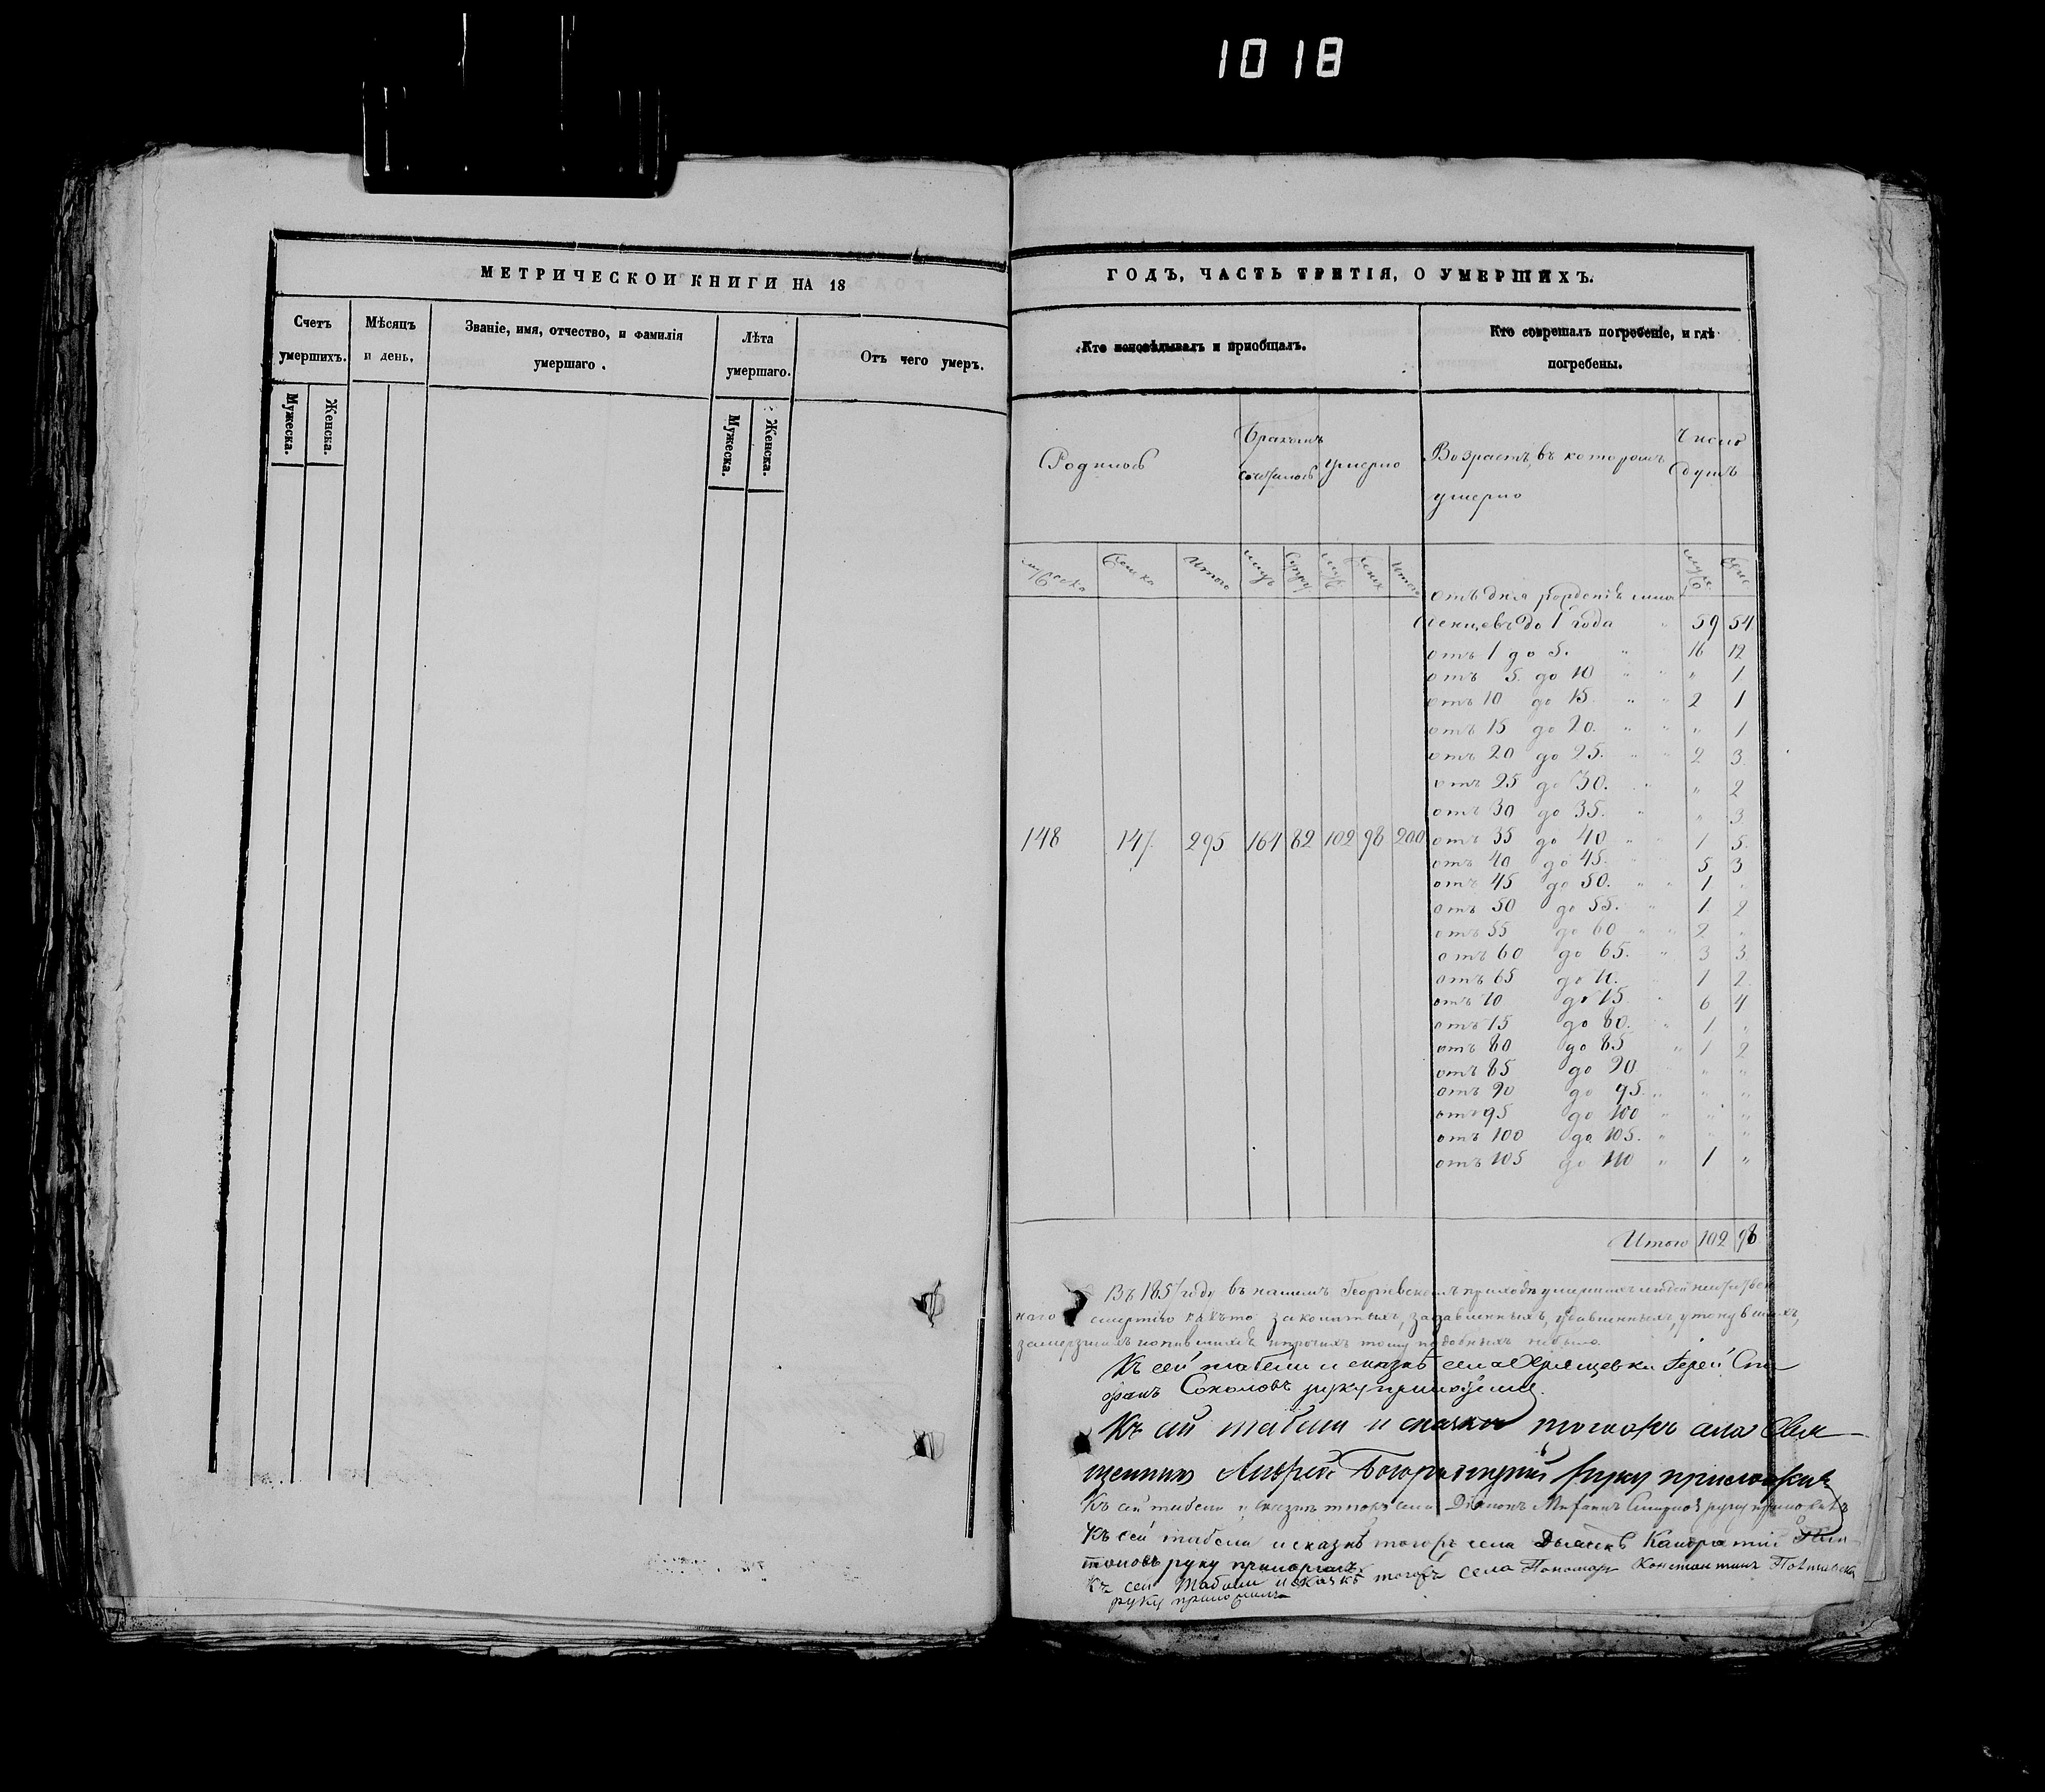 1018
МЕТРИЧЕСКОИ КНИГИ НА 18
Счетъ умершихъ.
Мѣсяцъ и день,
Званіе, имя, отчество, и фамилія умершаго .
Лѣта умершаго.
Отъ чего умеръ.
Мужеска.
Женска.
Мужеска.
Женска.
ГОДЪ, ЧАСТЬ ТРЕТІЯ, О УМЕРШИХЪ.
Кто исповѣдывалъ и пріобщалъ.
Кто совершалъ погребеніе, и гдѣ
погребены.
Родилось
Бракомъ
сочеталось
умерло
Возрастъ, въ которомъ
умерло
Число
душъ
мужеска
женска
Итого
муж
женск
Итого
отъ дня рожденія
до 1 года " 59 54
отъ 1 до 5. " 16 12
отъ 5. до 10 " " " 1
отъ 10 до 15 " " 2 1
отъ 15 до 20. " " " 1
отъ 20 до 25. " " 2 3
отъ 25 до 30. " " 2
отъ 30 до 35. " " 3
148 147 295 164 82 102 98 200
отъ 35 до 40 " " 1 5.
отъ 40 до 45. " 5 3
отъ 45 до 50. " " 1 "
отъ 50 до 55. " 1 2
отъ 55 до 60 " " 2 "
отъ 60 до 65. " 3 3
отъ 65 до 70. 1 2
отъ 70 до 75 " 6 4
отъ 75 до 80. " 1 "
отъ 80 до 85 " 1 2
отъ 85 до 90 " "
отъ 90 до 95. " " "
отъ 95 до 100 " " "
отъ 100 до 105. " " "
отъ 105 до 110 " 1 "
Итого 102 98
Въ 1857 году въ нашемъ Георгіевскомъ приходѣ умершихъ людей
смертію задавленныхъ, утонувшихъ,
замерзшихъ и прочихъ тому подобныхъ небыло.
Къ сей табели и сказкѣ села Хрящевки Іерей Сте
фанъ Соколовъ руку приложилъ.
Къ сей табели и сказкѣ тогожъ села Свя
щенникъ Андрей руку приложилъ
Къ сей табели и сказкѣ тогожъ села Діаконъ Смирновъ руку приложилъ
Къ сей табели и сказкѣ тогожъ села Дьячекъ Кондратій
руку приложилъ
Къ сей табели и сказкѣ тогожъ села Пономарь Константинъ
руку приложилъ